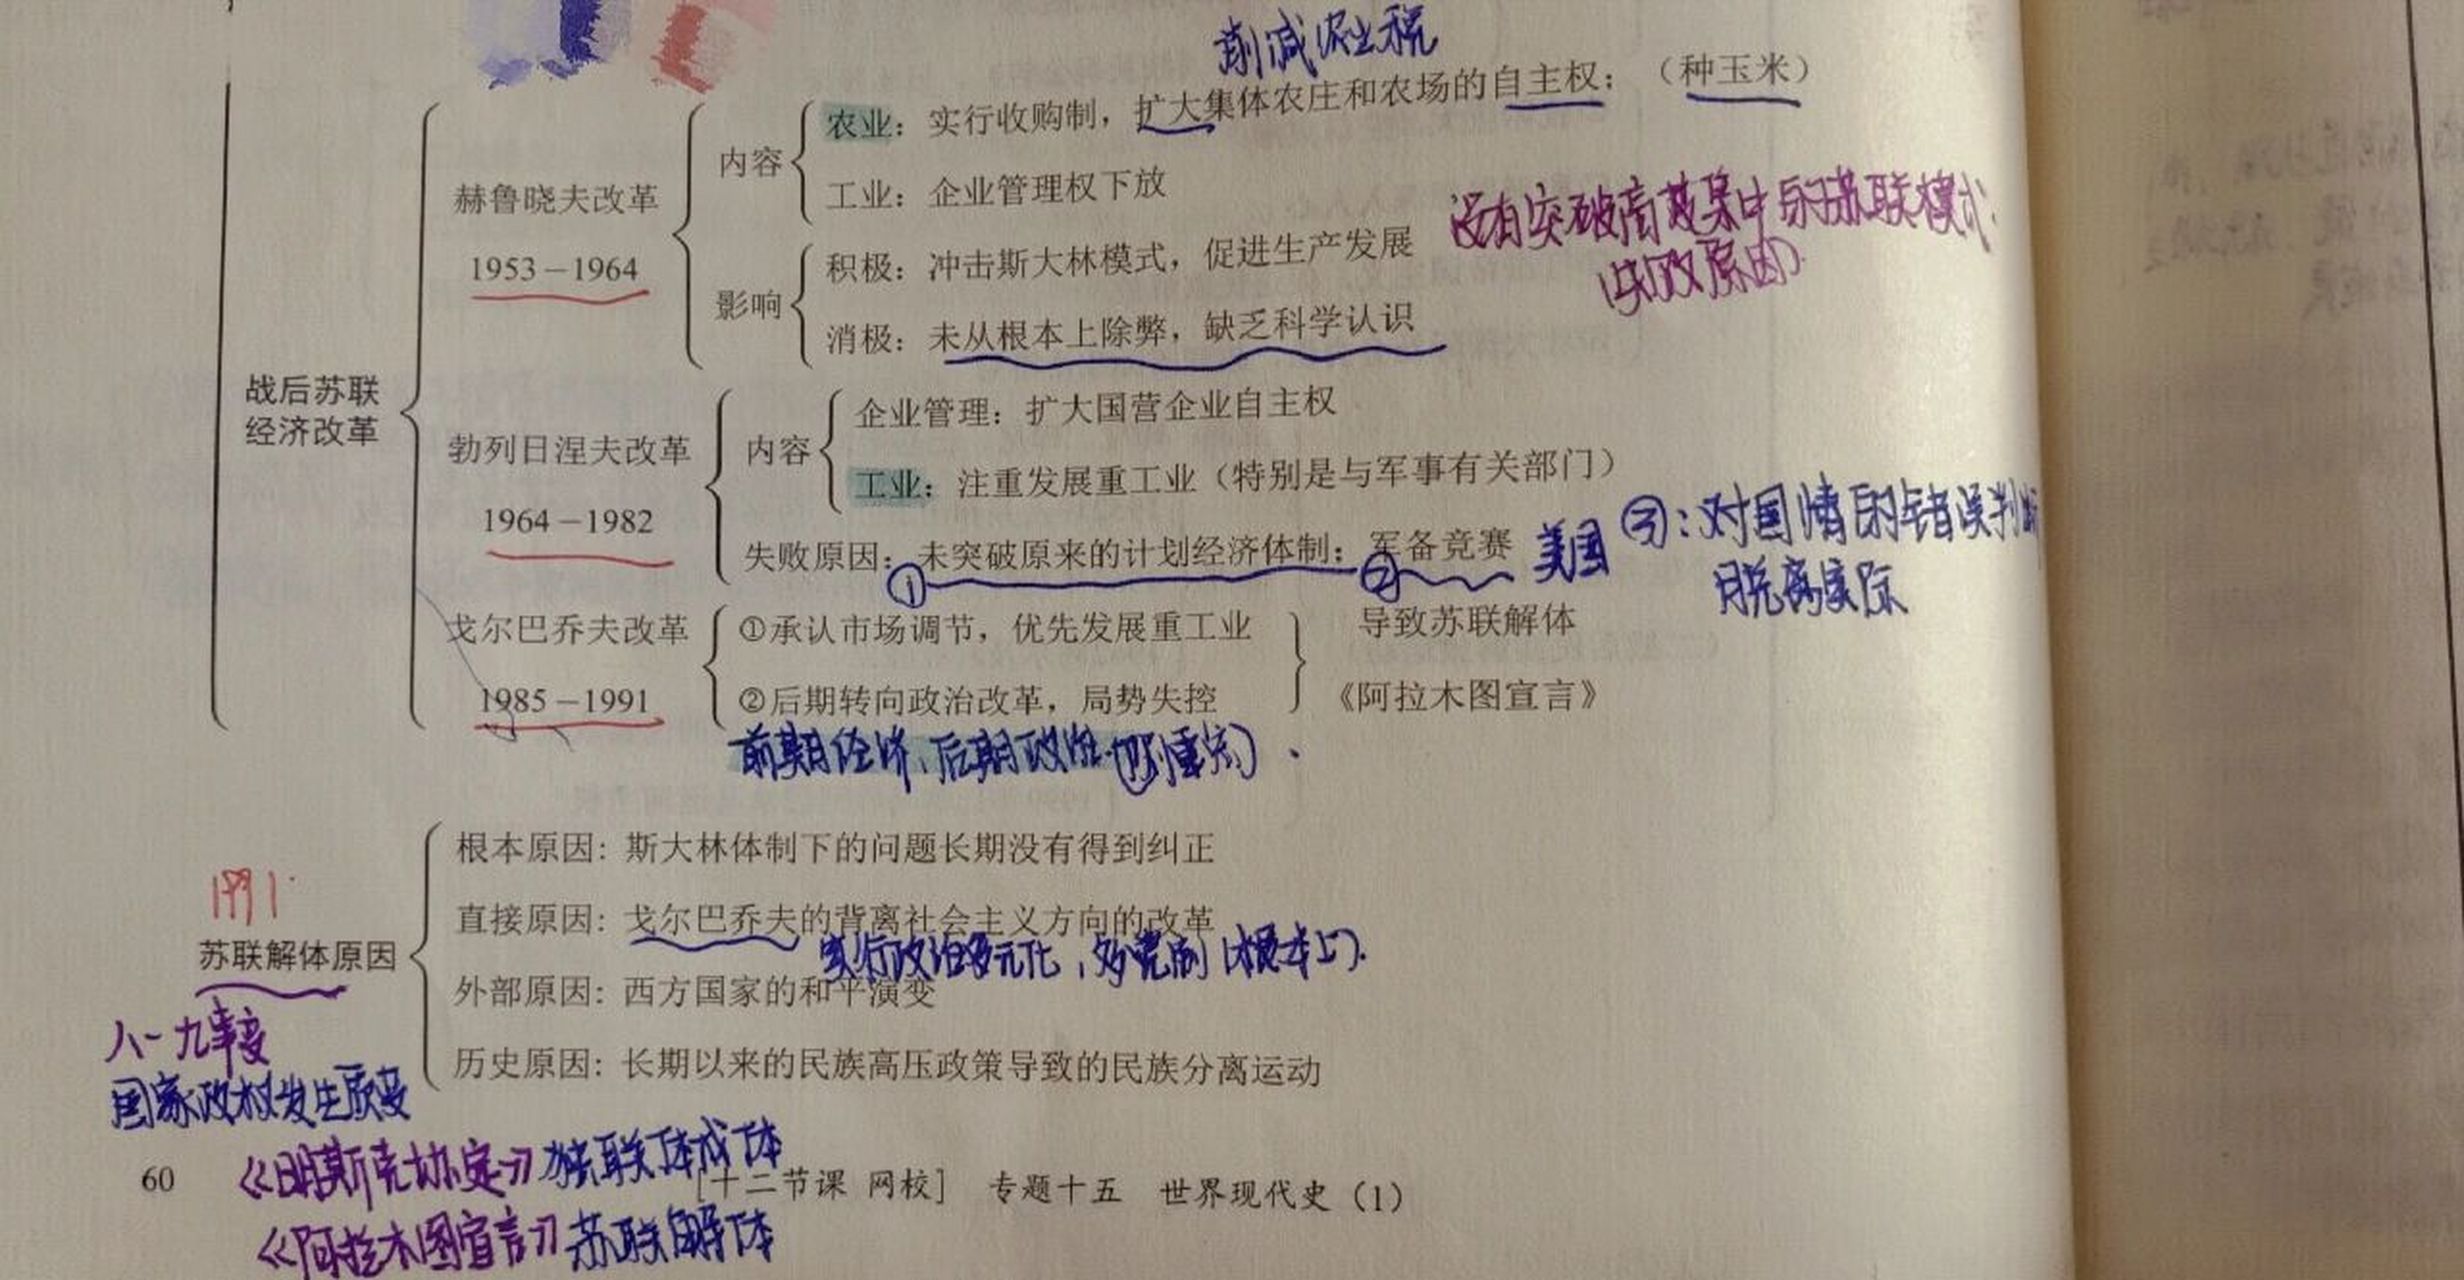 削减农业税
农业：实行收购制，扩大集体农庄和农场的自主权；（种玉米）
内容
工业：企业管理权下放
赫鲁晓夫改革
1953－1964
没有突破高度集中的苏联模式.
（失败原因）.
积极：冲击斯大林模式，促进生产发展
影响
消极：未从根本上除弊，缺乏科学认识
战后苏联
经济改革
企业管理：扩大国营企业自主权
勃列日涅夫改革
内容
工业：注重发展重工业（特别是与军事有关部门）
1964－1982
失败原因：①未突破原来的计划经济体制；②军备竞赛 美国 ③：对国情的错误判断
脱离实际
戈尔巴乔夫改革
①承认市场调节，优先发展重工业
导致苏联解体
1985－1991
②后期转向政治改革，局势失控
《阿拉木图宣言》
前期经济、后期政治（侧重点）.
根本原因：斯大林体制下的问题长期没有得到纠正
1991
直接原因：戈尔巴乔夫的背离社会主义方向的改革
实行政治多元化，多党制（根本上）.
苏联解体原因
外部原因：西方国家的和平演变
八一九事变
历史原因：长期以来的民族高压政策导致的民族分离运动
国家政权发生质变
《明斯克协定》独联体成体
60
[十二节课 网校] 专题十五 世界现代史（1）
《阿拉木图宣言》苏联解体